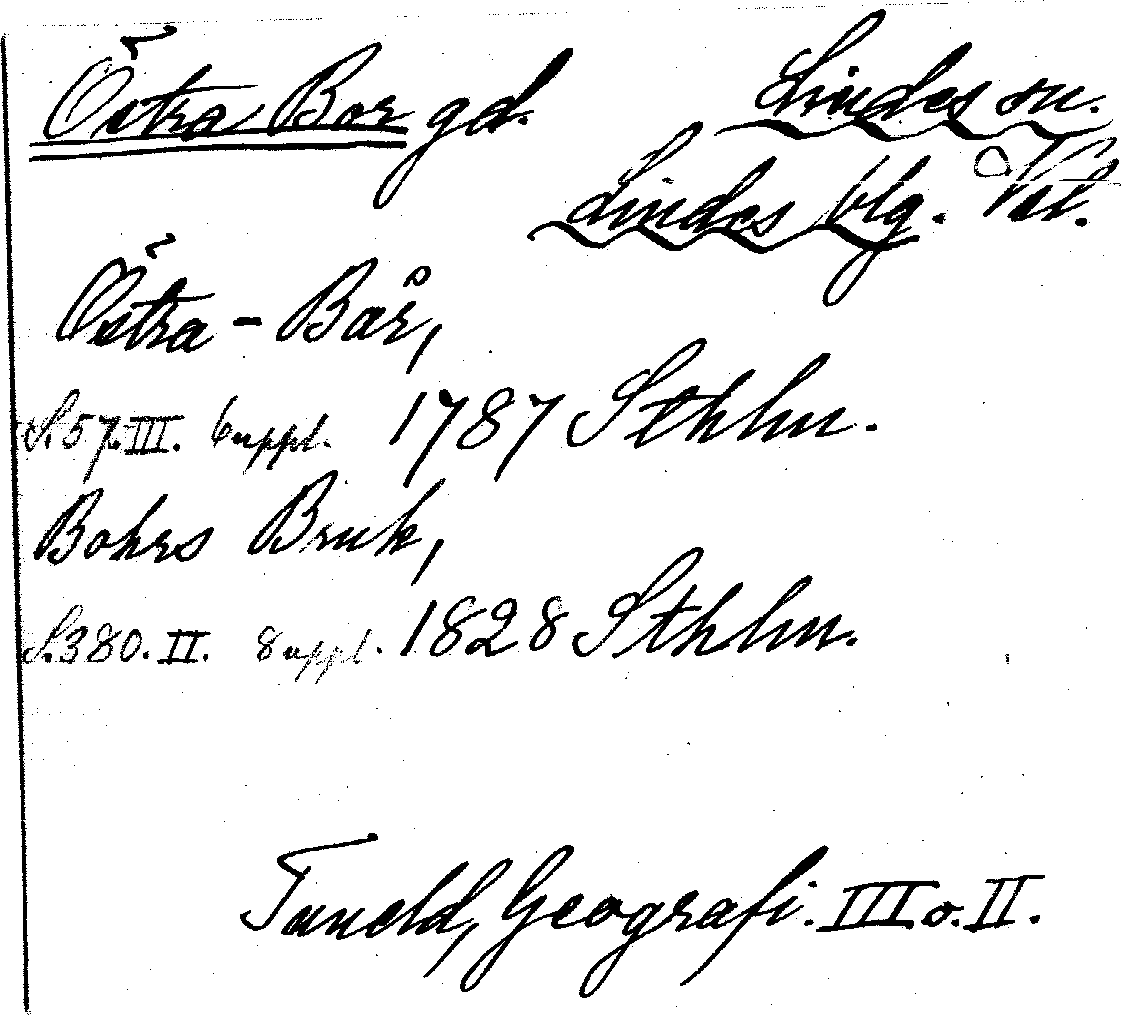 Östra Bor gd. Lindes sn.
Lindes blg. Vstl.
Östra - Bår,
S. 57. III. 6 uppl. 1787 Sthlm.
Bohrs Bruk,
S. 380. II. 8 uppl. 1828 Sthlm.
Tuneld, Geografi. III o. II.